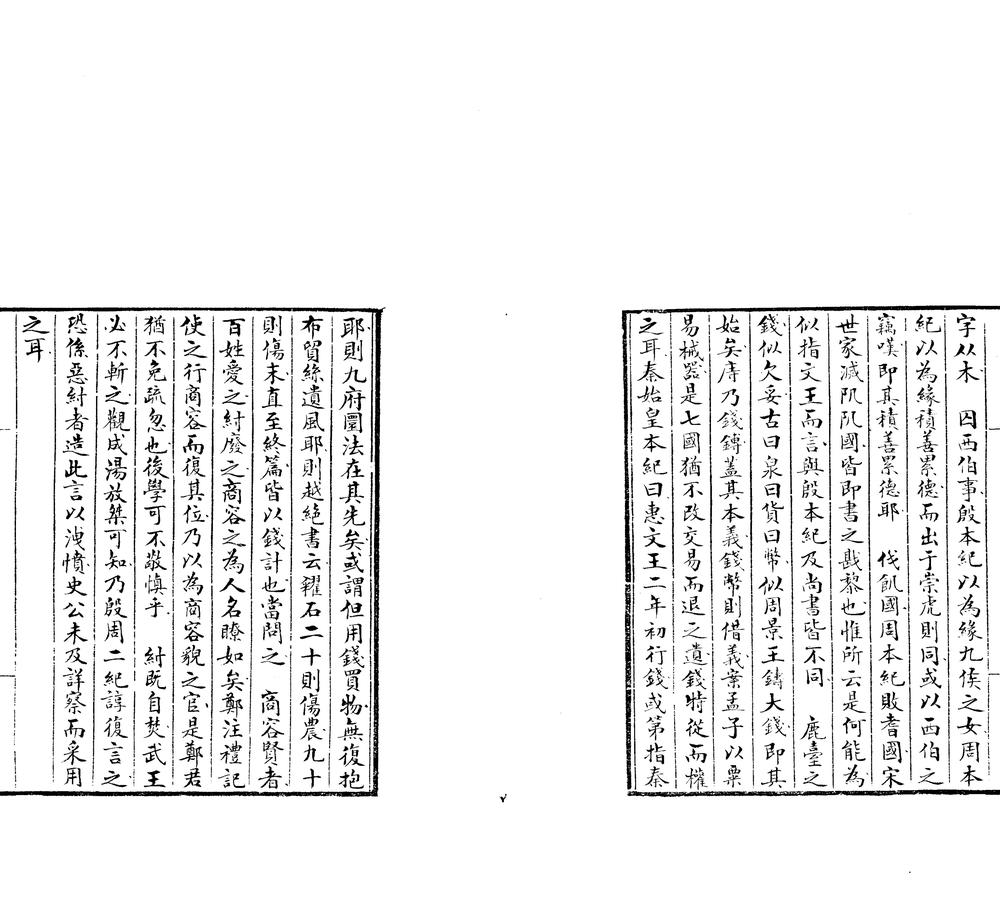 字从木　囚西伯事殷本紀以為緣九侯之女周本
紀以為緣積善累德而出于崇虎則同或以西伯之
竊嘆即其積善累德耶　伐飢國周本紀敗耆國宋
世家滅阢阢國皆即書之戡黎也惟所云是何能為
似指文王而言與殷本紀及尚書皆不同　鹿臺之
錢似欠妥古曰泉曰貨曰幣似周景王鑄大錢即其
始矣庤乃錢鎛蓋其本義錢幣則借義案孟子以粟
易械器是七國猶不改交易而退之遺錢特從而權
之耳秦始皇本紀曰惠文王二年初行錢或第指秦
耶則九府圜法在其先矣或謂但用錢買物無復抱
布貿絲遺風耶則越絕書云糴石二十則傷農九十
則傷末直至終篇皆以錢計也當問之　商容賢者
百姓愛之紂廢之商容之為人名瞭如矣鄭注禮記
使之行商容而復其位乃以為商容貌之官是鄭君
猶不免疏忽也後學可不敬慎乎　紂既自焚武王
必不斬之觀成湯放桀可知乃殷周二紀諄復言之
恐係惡紂者造此言以洩憤史公未及詳察而采用
之耳